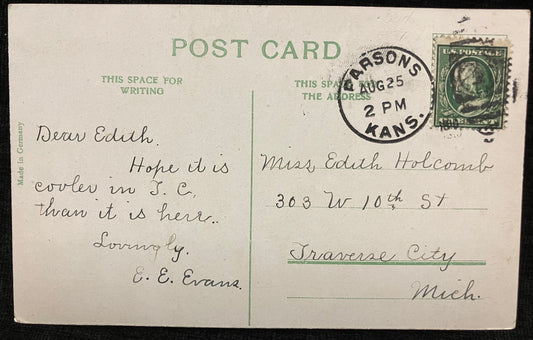 POST CARD
THIS SPACE FOR
WRITING
THIS SPACE
THE ADDRESS
PARSONS
AUG 25
2 PM
KANS.
U.S. POSTAGE
Made in Germany
Dear Edith.
Hope it is
cooler in T. C.
than it is here..
Lovingly.
E. E. Evans.
Miss Edith Holcomb
303 W 10th St
Traverse City
Mich.